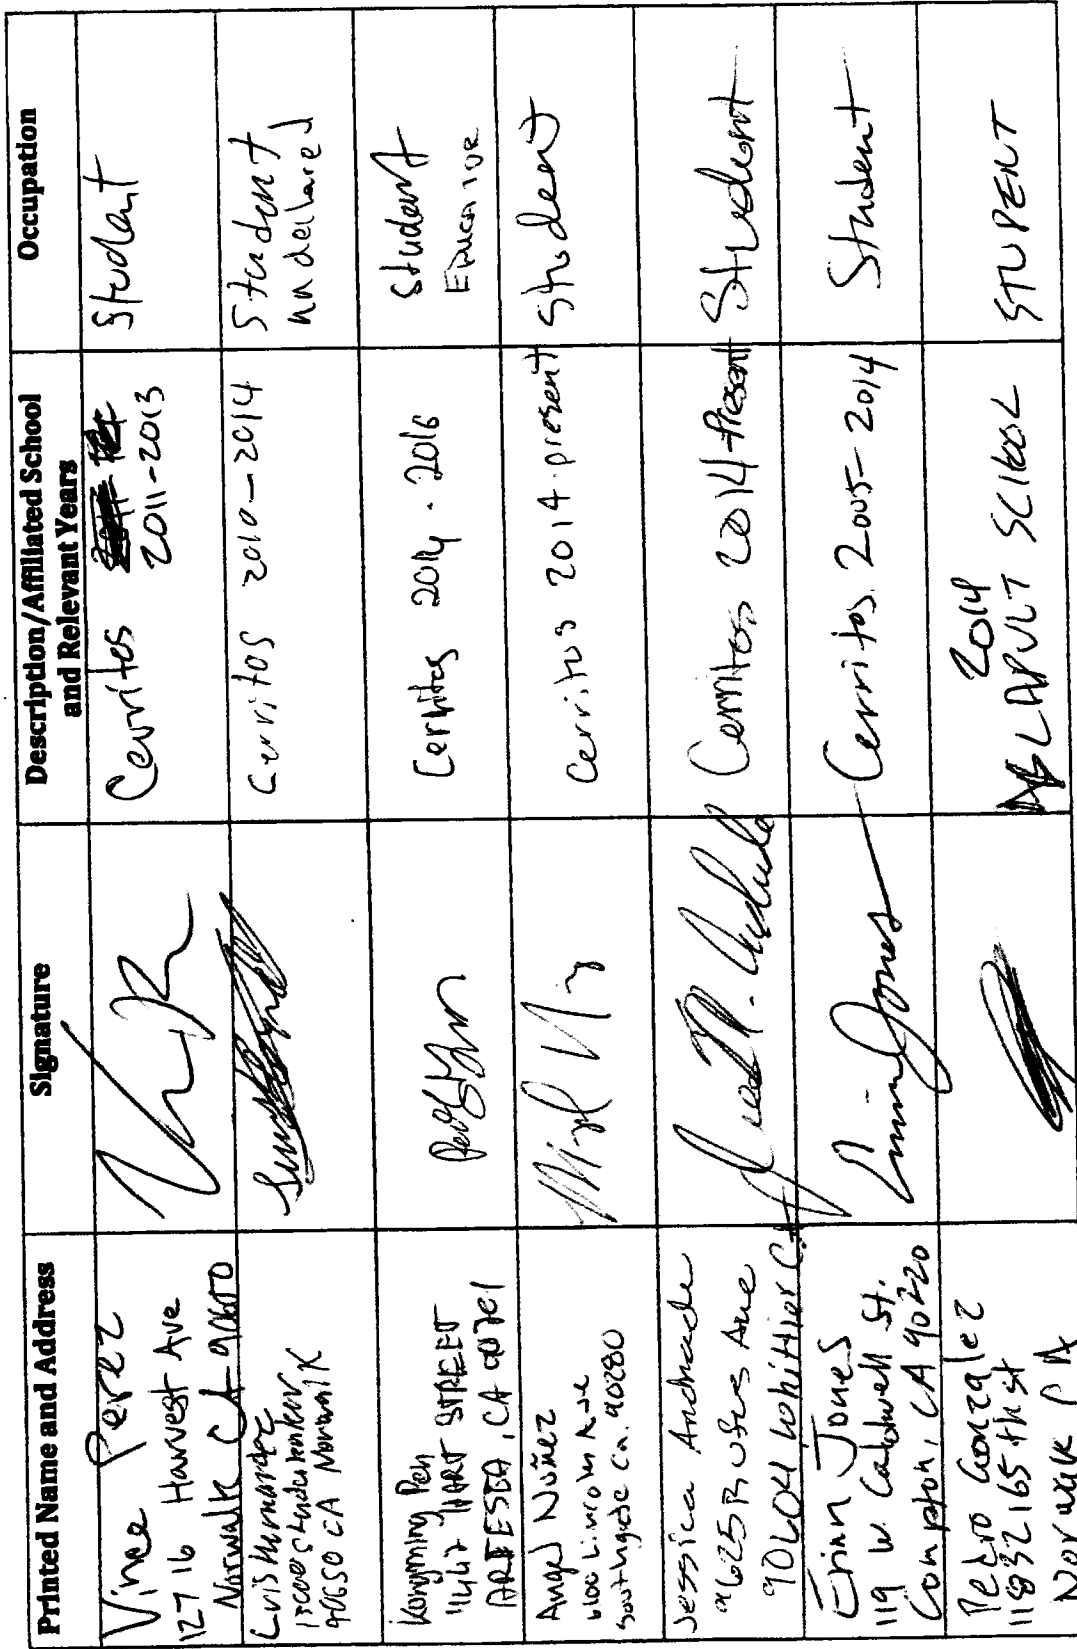 Printed Name and Address
Signature
Description/Affiliated School
and Relevant Years
Occupation
Vince Perez
12716 Harvest Ave
Norwalk CA 90650
Cerritos
2011-2013
Student
Luis Hernandez
90650 CA Norwalk
Cerritos 2010-2014
Student
undeclared
Pen
STREET
ARTESIA, CA 90701
Cerritos 2014 - 2016
Student
Angel Nuñez
Southgate Ca. 90280
Cerritos 2014-present
Student
Jessica Andrade
9625 Rufus Ave
90604 Whittier CA
Cerritos 2014-Present
Student
Erinn Jones
119 W. Caldwell St.
Compton, CA 90220
Erinn Jones
Cerritos 2005-2014
Student
Pedro Gonzalez
11832 165th st
Norwalk CA
2014
ADULT SCHOOL
STUDENT